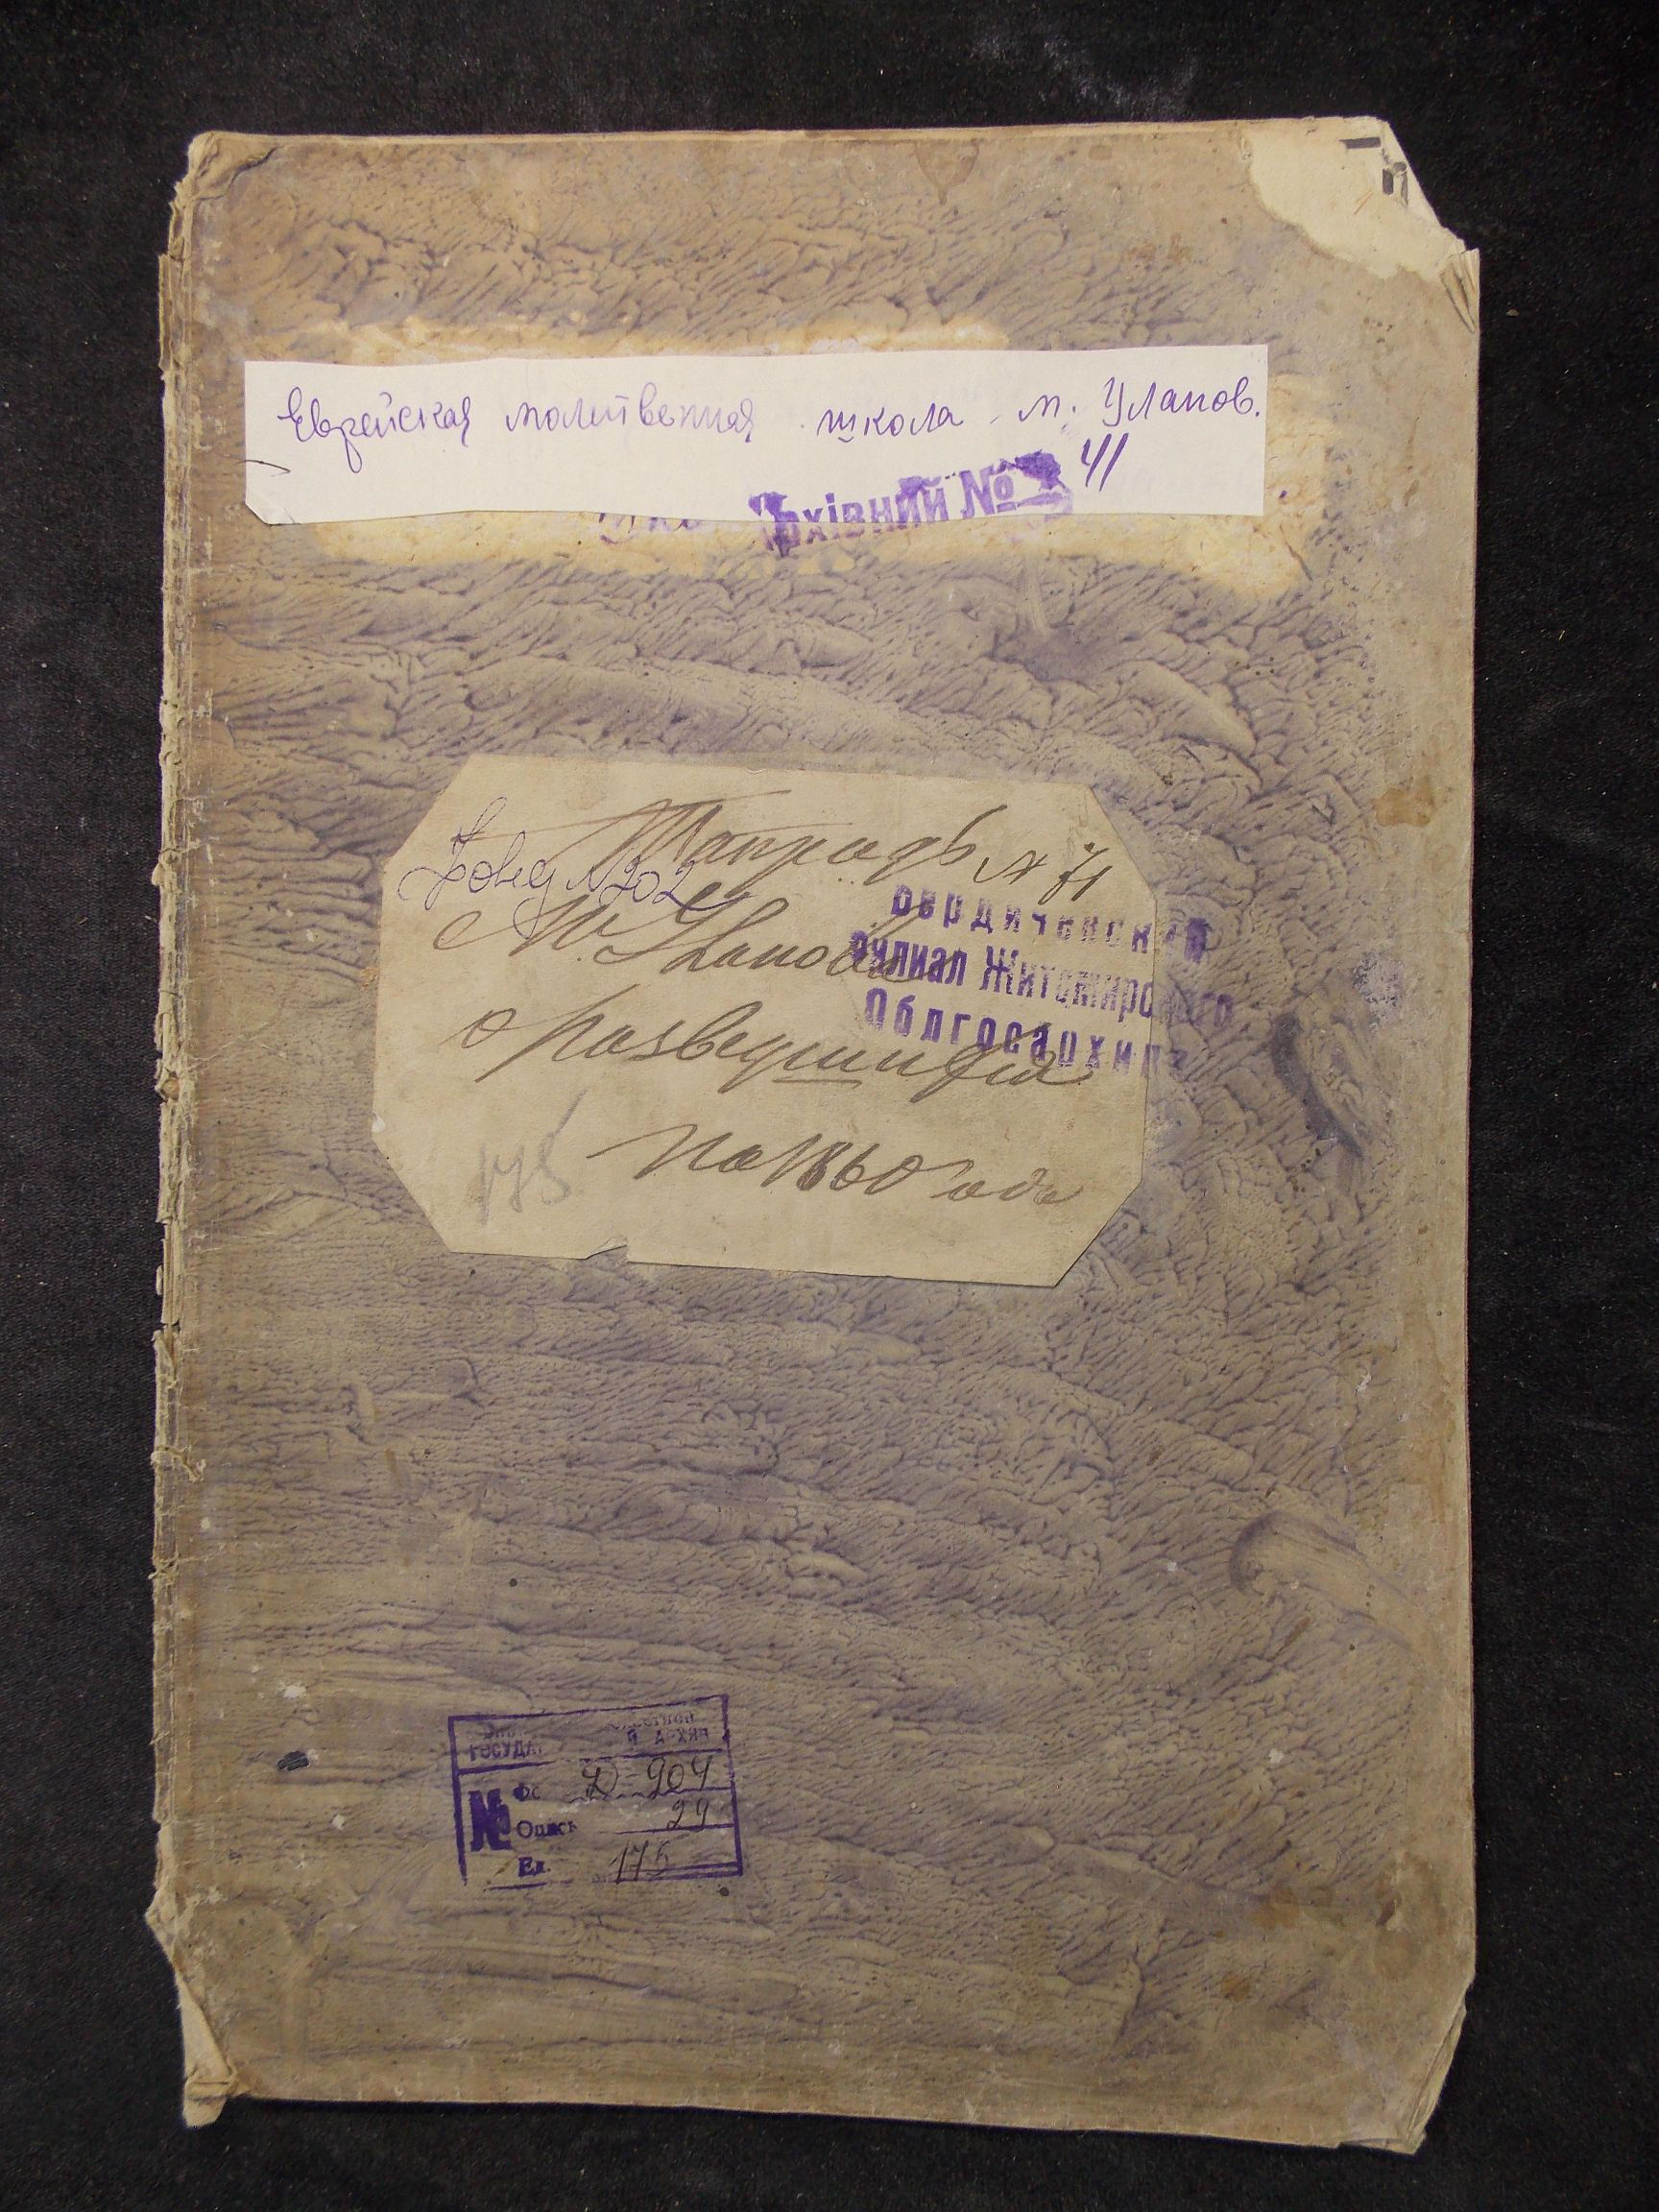 Еврейская молитвенная школа м. Уланов.
Архівний № 41
Тетрадь № 71
№ 202
М. Уланова
о разведшихся
на 1860 годъ
175
Бердичевский
Филиал Житомирского
Облгосархива
ГОСУДА АРХИВ
№
Фо Д-904
Опись 29
Ед. 175